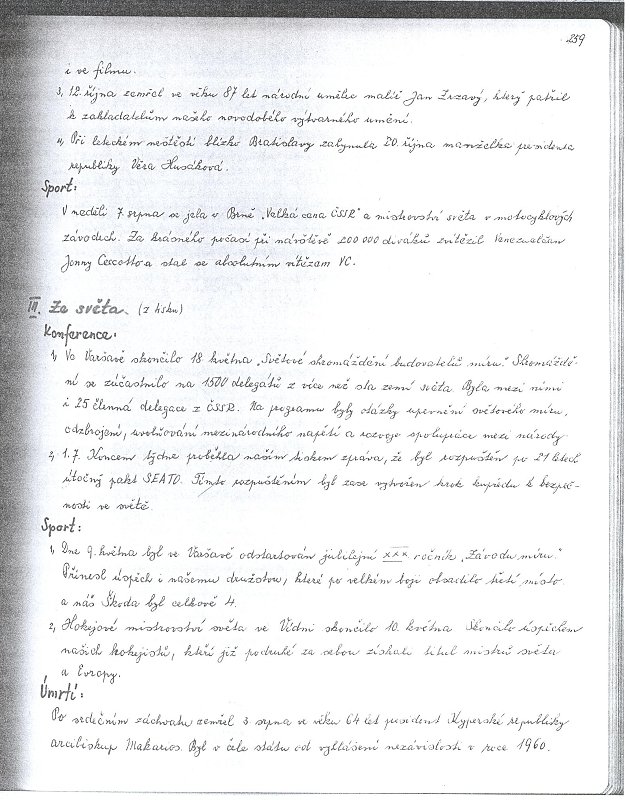 259
i ve filmu.
3, 12. října zemřel ve věku 87 let národní umělec malíř Jan Zrzavý, který patřil
k zakladatelům našeho novodobého výtvarného umění.
4, Při leteckém neštěstí blízko Bratislavy zahynula 20. října manželka presidenta
republiky Věra Husáková.
Sport:
V neděli 7. srpna se jela v Brně „Velká cena ČSSR" a mistrovství světa v motocyklových
závodech. Za krásného počasí při návštěvě 200 000 diváků zvítězil Venezuelčan
Jonny Cecotto a stal se absolutním vítězem VC.
III. Ze světa. (z tisku)
Konference:
1, Ve Varšavě skončilo 18 května „Světové shromáždění budovatelů míru." Shromáždě-
ní se zúčastnilo na 1500 delegátů z více než sta zemí světa. Byla mezi nimi
i 25 členná delegace z ČSSR. Na programu byly otázky upevnění světového míru,
odzbrojení, uvolňování mezinárodního napětí a rozvoje spolupráce mezi národy
2, 1.7. Koncem týdne proběhla naším tiskem zpráva, že byl rozpuštěn po 21 letech
útočný pakt SEATO. Tímto rozpuštěním byl zase vytvořen krok kupředu k bezpeč-
nosti ve světě.
Sport:
1, Dne 9. května byl ve Varšavě odstartován jubilejní XXX. ročník „Závodu míru."
Přinesl úspěch i našemu družstvu, které po velkém boji obsadilo třetí místo
a náš Škoda byl celkově 4.
2, Hokejové mistrovství světa ve Vídni skončilo 10. května Skončilo úspěchem
našich hokejistů, kteří již podruhé za sebou získali titul mistrů světa
a Evropy.
Úmrtí:
Po srdečním záchvatu zemřel 3 srpna ve věku 64 let president Kyperské republiky
arcibiskup Makarios. Byl v čele státu od vyhlášení nezávislosti v roce 1960.